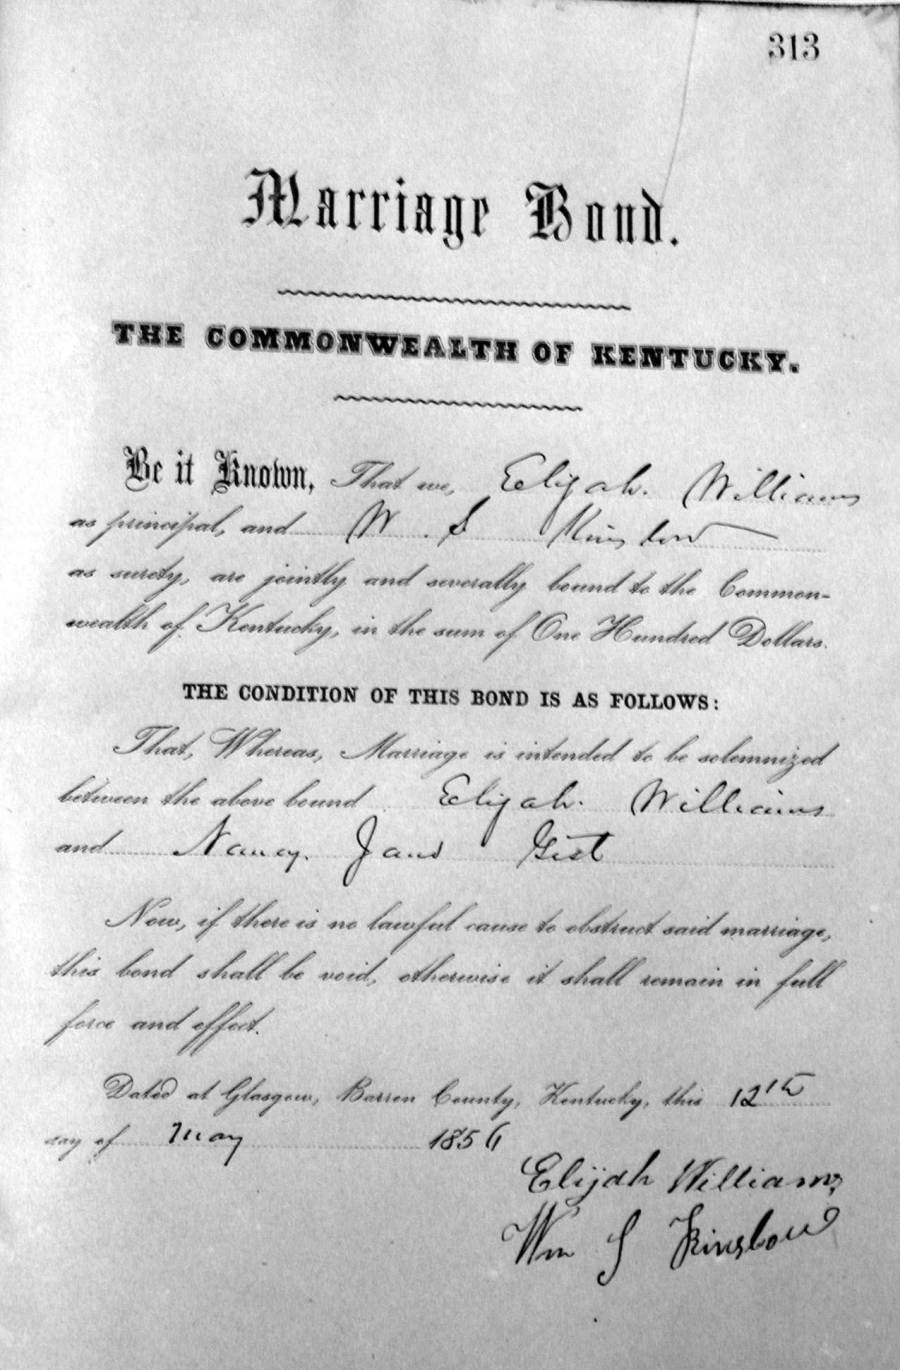 313
Marriage Bond.
THE COMMONWEALTH OF KENTUCKY.
Be it Known, That we, Elijah. Williams
as principal, and W. S Kinslow
as surety, are jointly and severally bound to the Common-
wealth of Kentucky, in the sum of One Hundred Dollars.
THE CONDITION OF THIS BOND IS AS FOLLOWS:
That, Whereas, Marriage is intended to be solemnized
between the above bound Elijah. Williams
and Nancy. Jane Gist
Now, if there is no lawful cause to obstruct said marriage,
this bond shall be void, otherwise it shall remain in full
force and effect.
Dated at Glasgow, Barren County, Kentucky, this 12th
day of May 1856
Elijah Williams
Wm S Kinslow